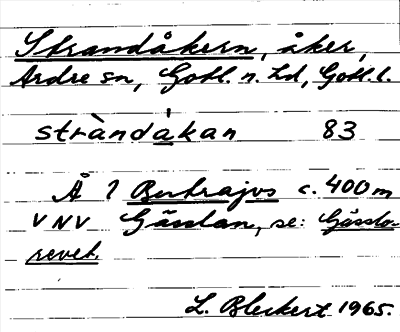 Strandåkern, åker,
Ardre sn, Gotl. n. hd, Gotl. l.
stràndákan 83
Å 1 Bertrajvs c. 400 m
VNV Gässlan, se: Gässlo-
revet.
L. Bleckert 1965.